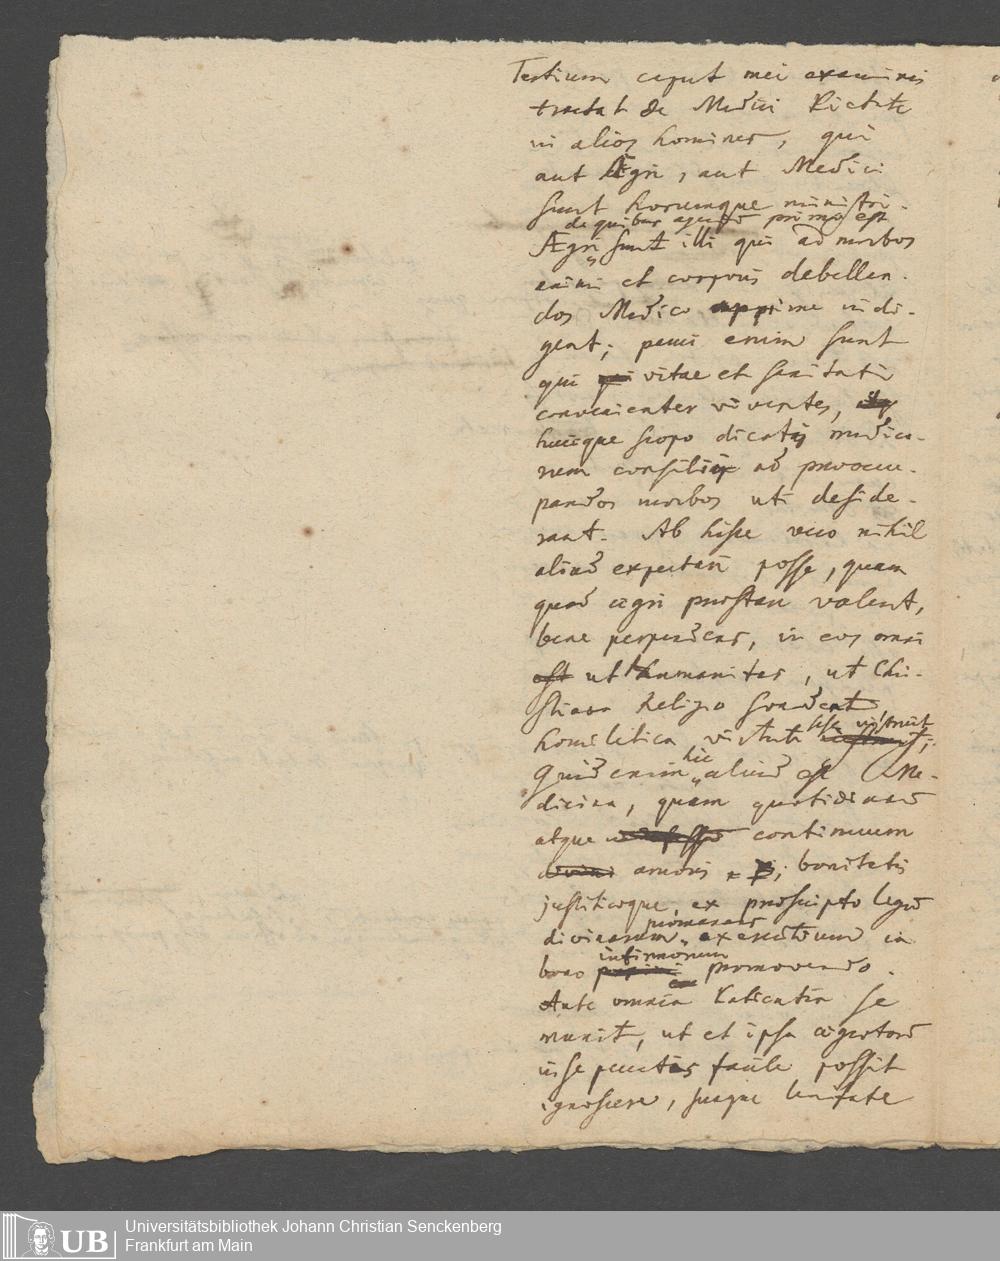 Tertium caput mei examinis
tractat de Medici Pietate
in alios homines, qui
aut Ægri, aut Medici
sunt horumque ministri.
de quibus agendū primo est
Ægri sunt illi qui ad morbos
animi et corporis debellan-
dos Medico apprime indi-
gent; pauci enim sunt
qui vitae et sanitati
convenienter viventes,
huicque scopo dicatis medico-
rum consiliis ad praeoccu-
pandos morbos uti deside-
rant. Ab hisce vero nihil
aliud expectari posse, quam
quod aegri praestare valent,
bene perpendens, in eos omni
est ut humanitas, ut Chri-
stiana Religio suadent
homiletica virtute sese instruit;
Quid enim hic aliud est Me-
dicina, quam quotidianū
atque continuum
divini amoris, bonitatis
justitiaeque, ex praescripto legū
divinarum, exercitium in
bono infirmorum promovendo.
Ante omnia Patientia se
munit, ut et ipsa aegrotorū
in se peccatis facile possit
ignoscere, suaque lenitate
UB
Universitätsbibliothek Johann Christian Senckenberg
Frankfurt am Main